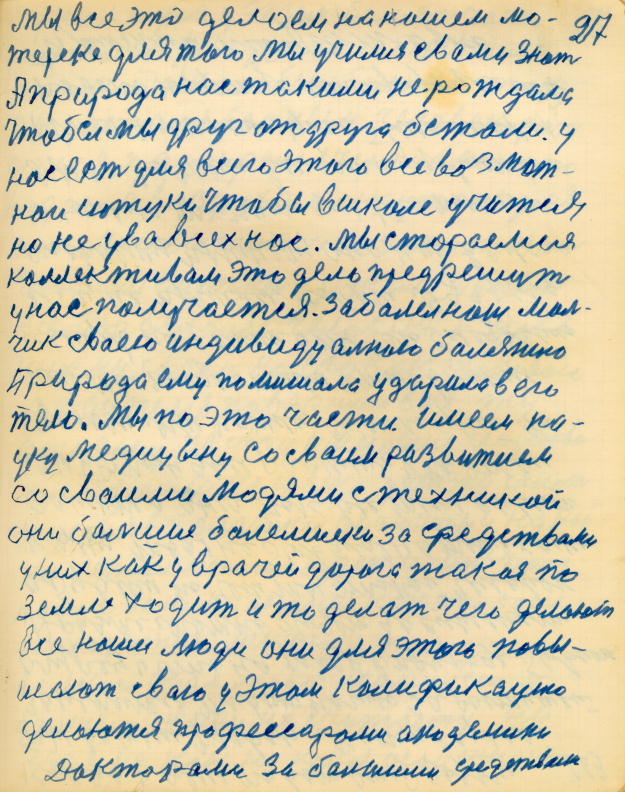 мы все это делоем на нашем мо- 27
тереке для того мы учимися свами знат
А природа нас такими не рождала
Чтобы мы друг от друга бежали. у
нас ест для всего этого все возмож-
наи штуки Чтобы в школе учится
но не ува всех нас. мы стораемися
коллективам это дело предрешит
у нас получается. Забалел наш мал-
чик сваею индивидуалною балезнию
Природа ему помишала ударила в его
тело. мы по это части имеем на-
уку медицыну со сваим развитием
со сваими людями с техникой
они балшие за средствами
у них как у врачей дорога такая по
земле ходит и то делат чего делают
все наши люди они для этого повы-
шают сваю у этом калификацию
делаются профессарами академики
Докторами за балшими средствами